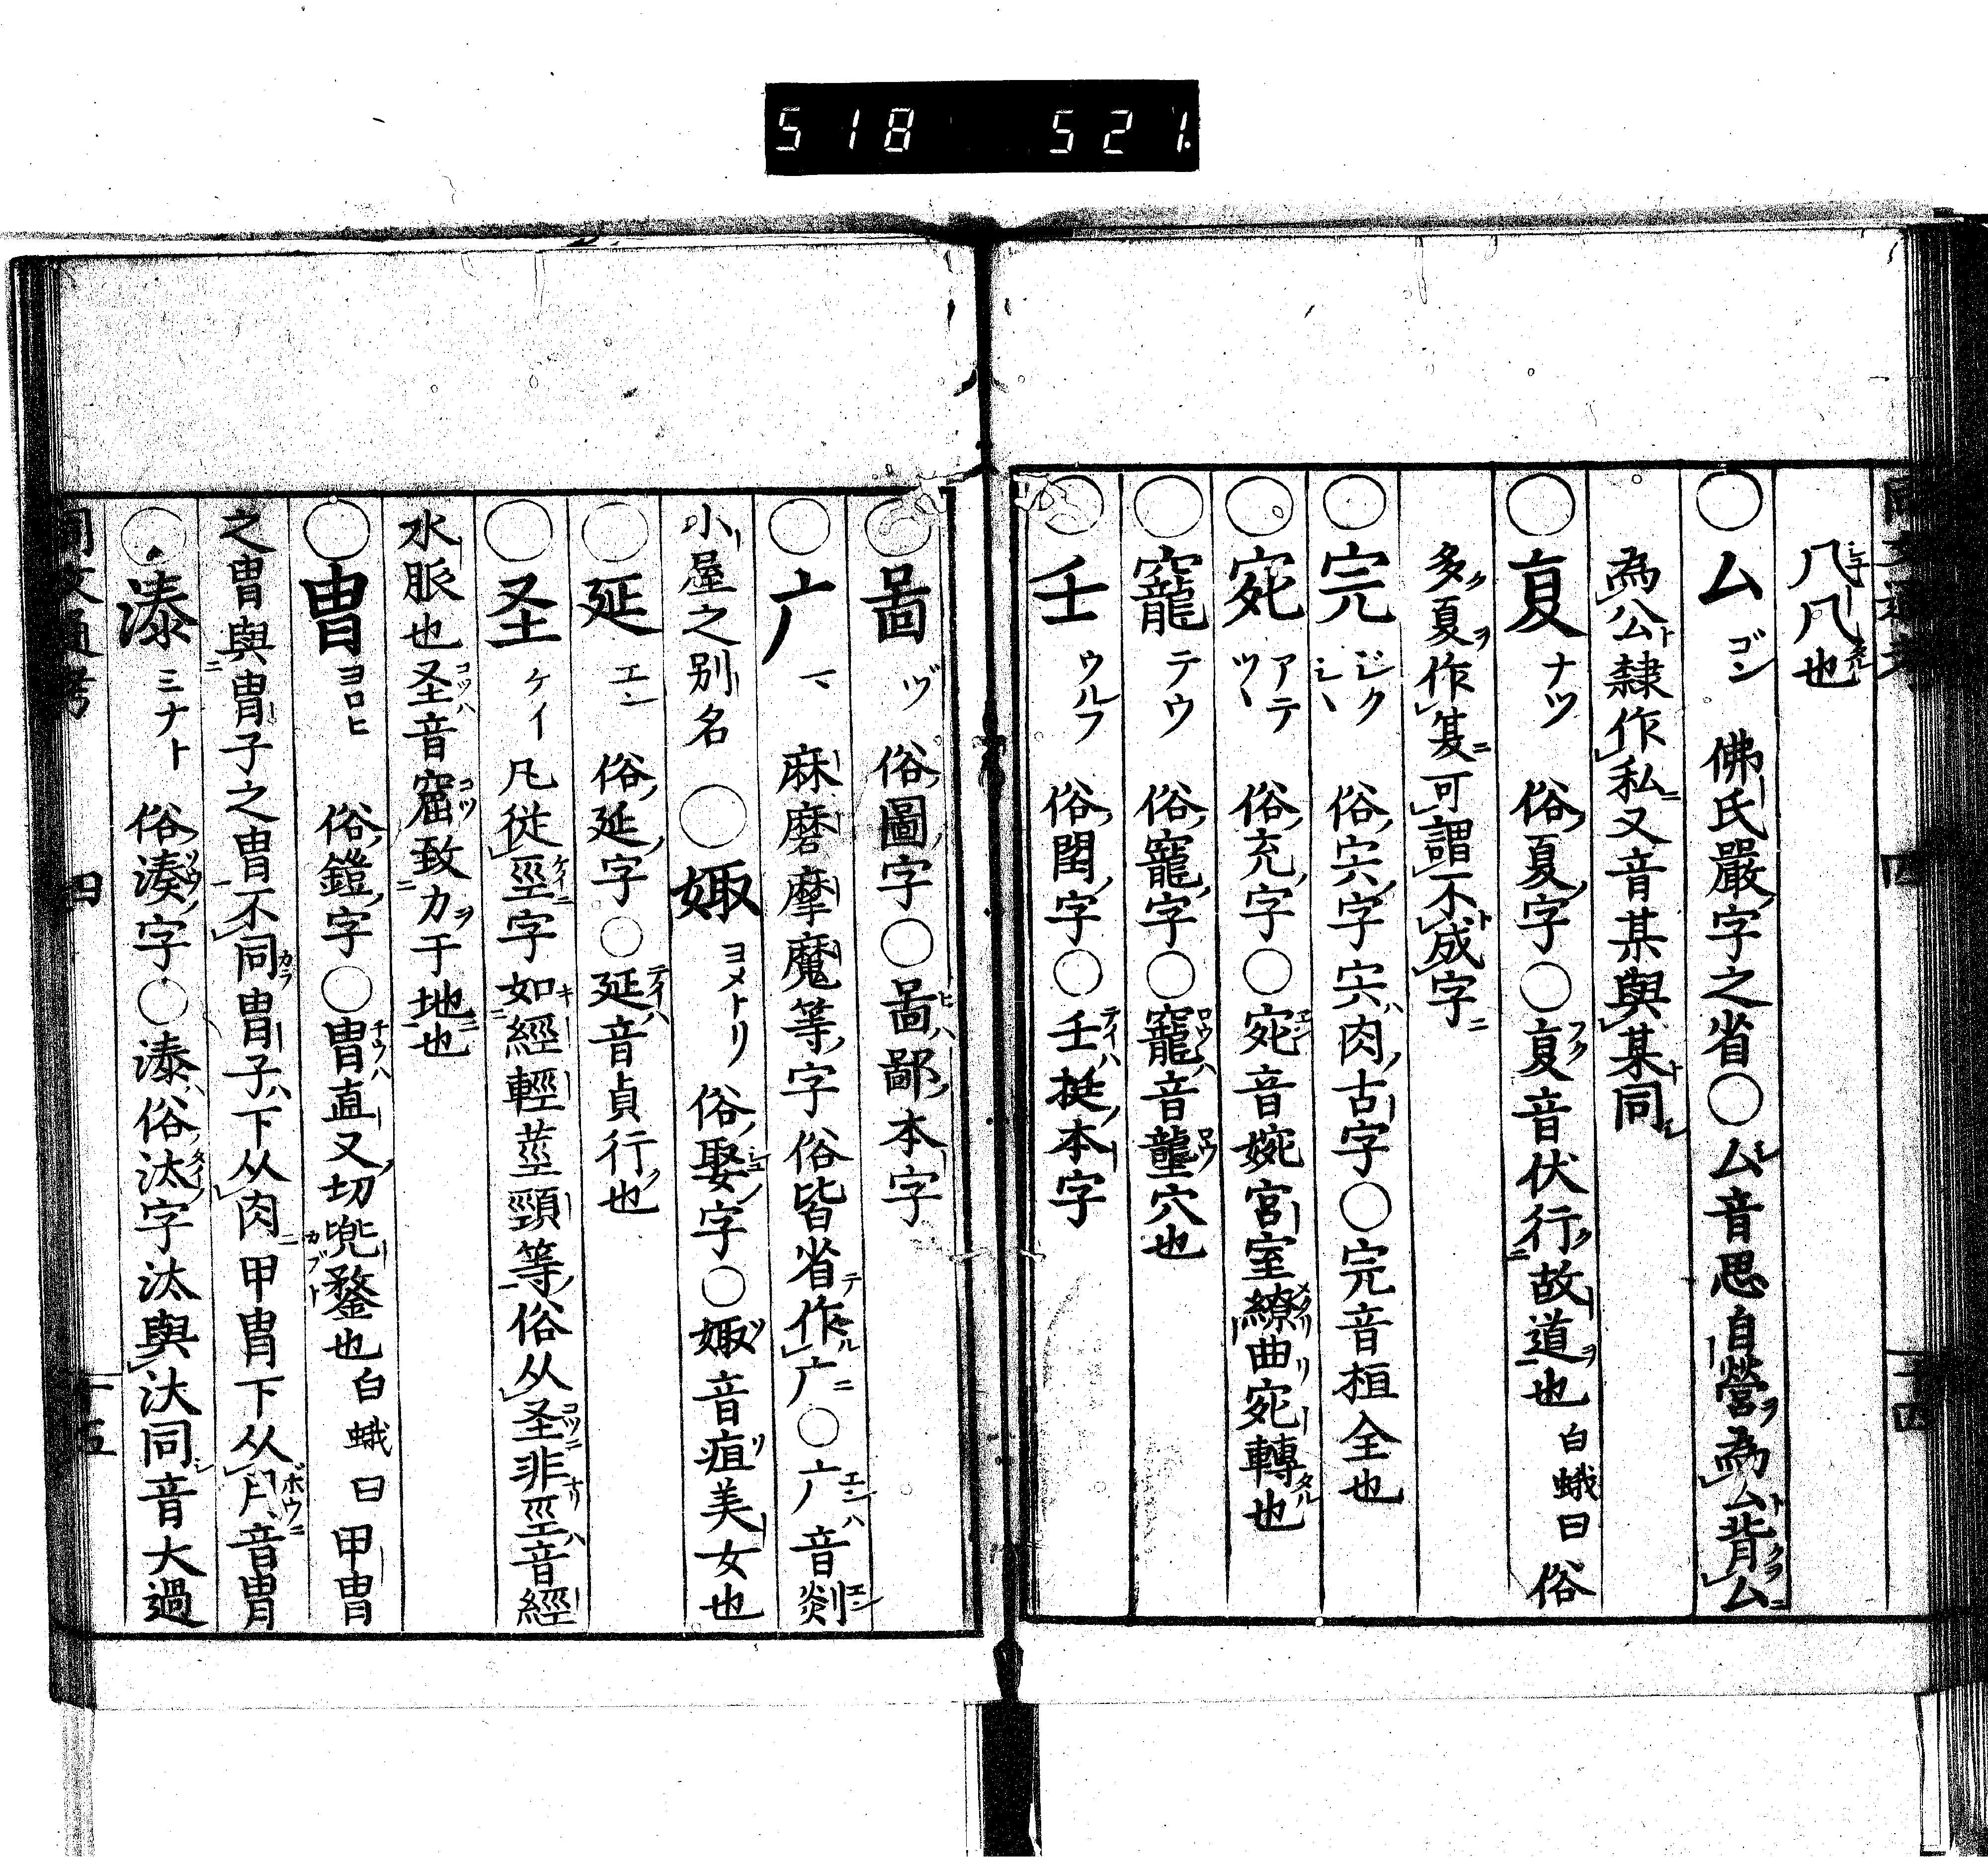 518 521.
八八也
○厶 ゴン 佛氏嚴字之省○厶音思自營為厶背厶
為公隷作私又音某與某同
○夏 ナツ 俗夏字○夏音伏行故道也 白蛾曰俗
多夏作夏可謂不成字
○完 ジク シヽ 俗宍字宍肉古字○完音桓全也
○宛 アテ ツヽ 俗充字○宛音婉宮室繚曲宛轉也
○竉 テウ 俗寵字○竉音壟穴也
○壬 ウルフ 俗閏字○壬挺本字
○啚 ヅ 俗圖字○啚鄙本字
○广 マ 麻磨摩魔等字俗皆省作广○广音剡
小屋之別名○娵 ヨメトリ 俗娶字○娵音疽美女也
○延 エン 俗延字○延音貞行也
○圣 ケイ 凡從巠字如經輕莖頸等俗从圣非巠音經
水脈也圣音窟致力于地也
○冑 ヨロヒ 俗鎧字○冑直又切兜鍪也 白蛾曰甲冑
之冑與胄子之冑不同胄子下从肉甲冑下从冃音冒
○溱 ミナト 俗湊字○溱俗汰字汰與汏同音大過
同文通考 四 十五